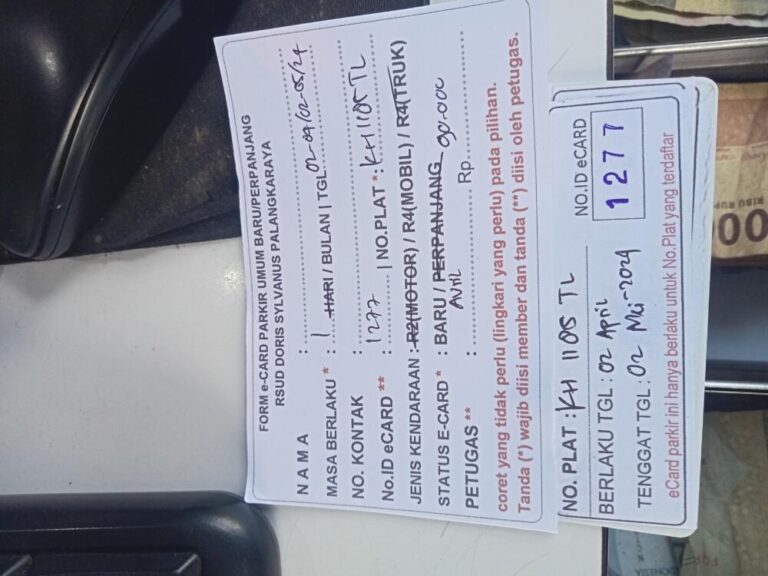 FORM e-CARD PARKIR UMUM BARU/PERPANJANG
RSUD DORIS SYLVANUS PALANGKARAYA
N A M A :
MASA BERLAKU * : 1 HARI / BULAN | TGL 02-04/02-05/24
NO. KONTAK :
No.ID eCARD ** : 1277 | NO.PLAT * : KH 1105 TL
JENIS KENDARAAN : R2(MOTOR) / R4(MOBIL) / R4(TRUK)
STATUS E-CARD * : BARU / PERPANJANG
PETUGAS ** : Avril Rp. 90.000
coret yang tidak perlu (lingkari yang perlu) pada pilihan.
Tanda (*) wajib diisi member dan tanda (**) diisi oleh petugas.
NO. PLAT : KH 1105 TL
BERLAKU TGL : 02 April
TENGGAT TGL : 02 Mei-2024
NO.ID eCARD
1277
eCard parkir ini hanya berlaku untuk No.Plat yang terdaftar
RIBU RUP
000
INDONESIA